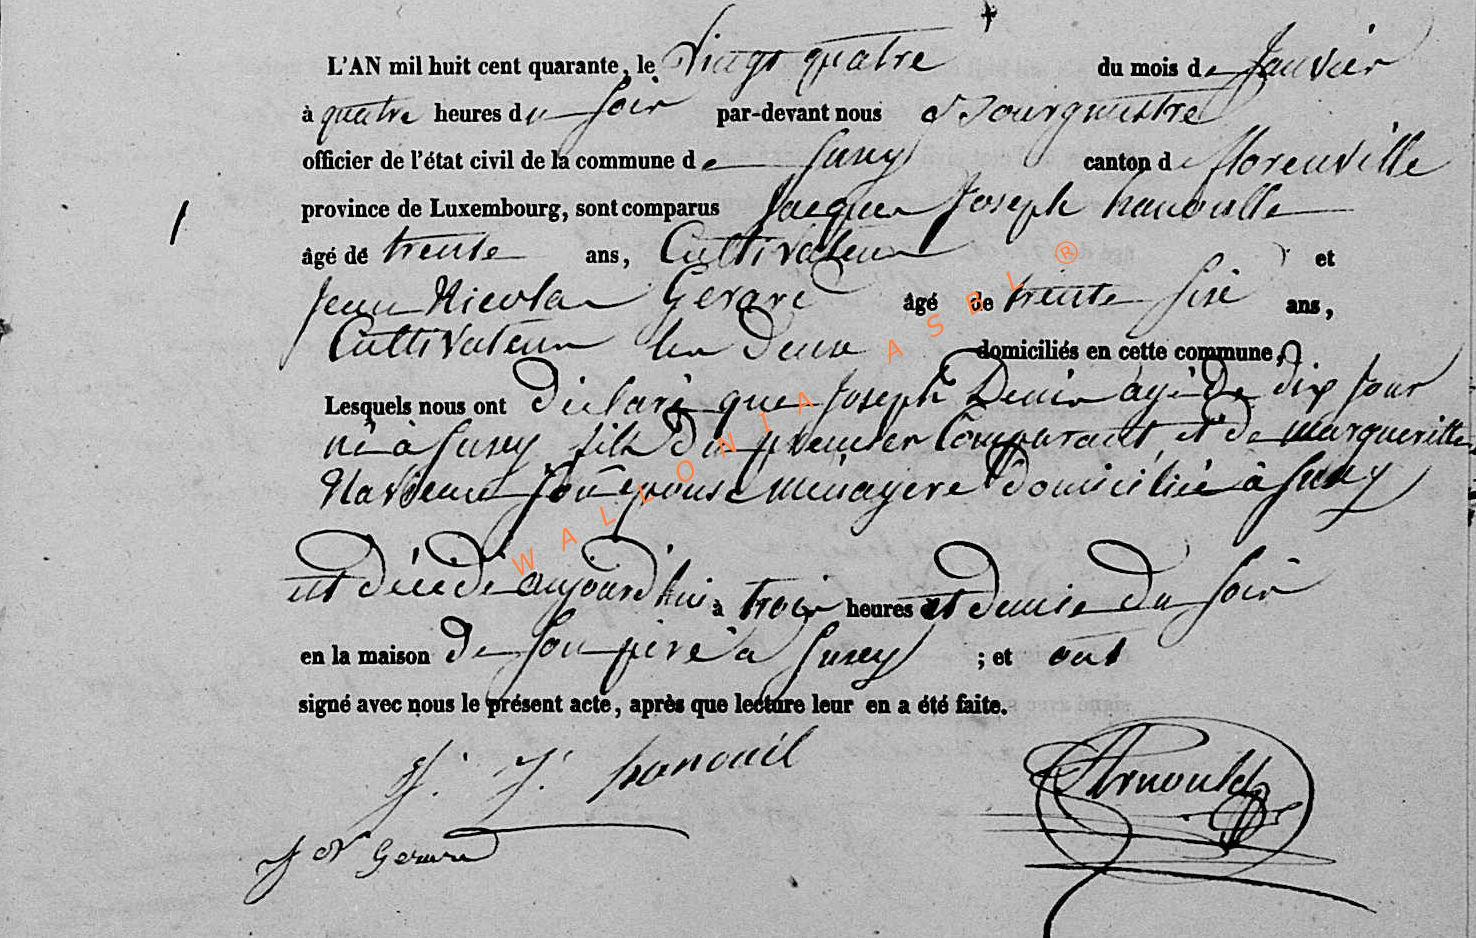 L'AN mil huit cent quarante, le vingt quatre du mois de Janvier
à quatre heures du Soir par-devant nous Bourgmestre
officier de l'état civil de la commune de Suxy canton de florenville
province de Luxembourg, sont comparus Jacques Joseph hanouille
1
âgé de trente ans, Cultivateur et
Jean Nicolas Gerard âgé de trente six ans,
Cultivateur les deux domiciliés en cette commune,
Lesquels nous ont déclaré que Joseph Denis agé de dix jour
né à Suxy fils du premier Comparant et de margueritte
son épouse ménagère domiciliée à Suxy
est décédé aujourd'hui à trois heures et demie du Soir
en la maison de son père à Suxy ; et ont
signé avec nous le présent acte, après que lecture leur en a été faite.
J. J. hanouil
Arnould
J N Gerard
WALLONIA ASBL ®